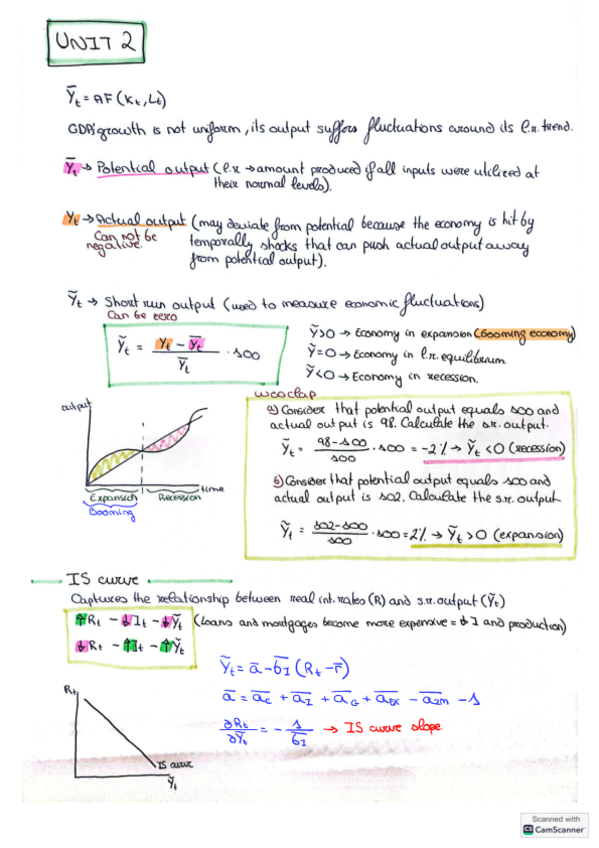 UNIT 2
Ȳt = AF (Kt, Lt)
GDP growth is not uniform, its output suffers fluctuations around its l.r. trend.
Ȳt → Potential output (l.r → amount produced if all inputs were utilized at
their normal levels).
Yt → Actual output (may deviate from potential because the economy is hit by
Can not be negative.
temporally shocks that can push actual output away
from potential output).
Ỹt → Short run output (used to measure economic fluctuations)
Can be zero
Ỹt = (Yt − Ȳt) / Ȳt · 100
Ỹ>0 → Economy in expansion (booming economy)
Ỹ=0 → Economy in l.r. equilibrium.
Ỹ<0 → Economy in recession.
wooclap
a) Consider that potential output equals 100 and
actual output is 98. Calculate the s.r. output.
Ỹt = (98-100) / 100 · 100 = -2% → Ỹt < 0 (recession)
b) Consider that potential output equals 100 and
actual output is 102. Calculate the s.r. output
Ỹt = (102-100) / 100 · 100 = 2% → Ỹt > 0 (expansion)
output
time
Expansion
Recession
Booming
IS curve
Captures the relationship between real int. rates (R) and s.r. output (Ỹt)
↑Rt - ↓It - ↓Ỹt (loans and mortgages become more expensive = ↓ I and production)
↓Rt - ↑It - ↑Ỹt
Ỹt = ā - b̄I (Rt - r̄)
ā = āc + āI + āG + āEX - āIM - 1
∂Rt / ∂Ỹt = - 1 / b̄I → IS curve slope.
Rt
IS curve
Ỹt
Scanned with
CS CamScanner